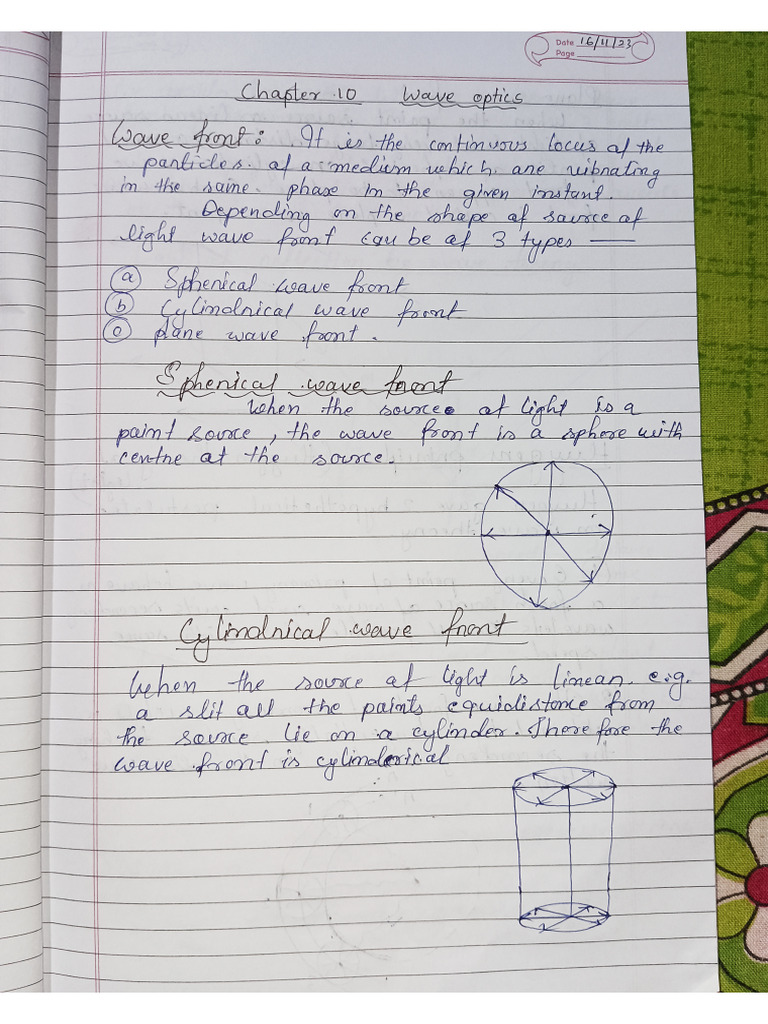 Date 16/11/23
Page
Chapter 10 Wave optics
Wave front: It is the continuous locus of the
particles of a medium which are vibrating
in the same phase in the given instant.
Depending on the shape of source of
light wave front can be of 3 types —
(a) Spherical wave front
(b) Cylindrical wave front
(c) plane wave front.
Spherical wave front
When the source of light is a
point source, the wave front is a sphere with
centre at the source.
Cylindrical wave front
When the source of light is linear e.g.
a slit all the points equidistance from
the source lie on a cylinder. Therefore the
wave front is cylinderical